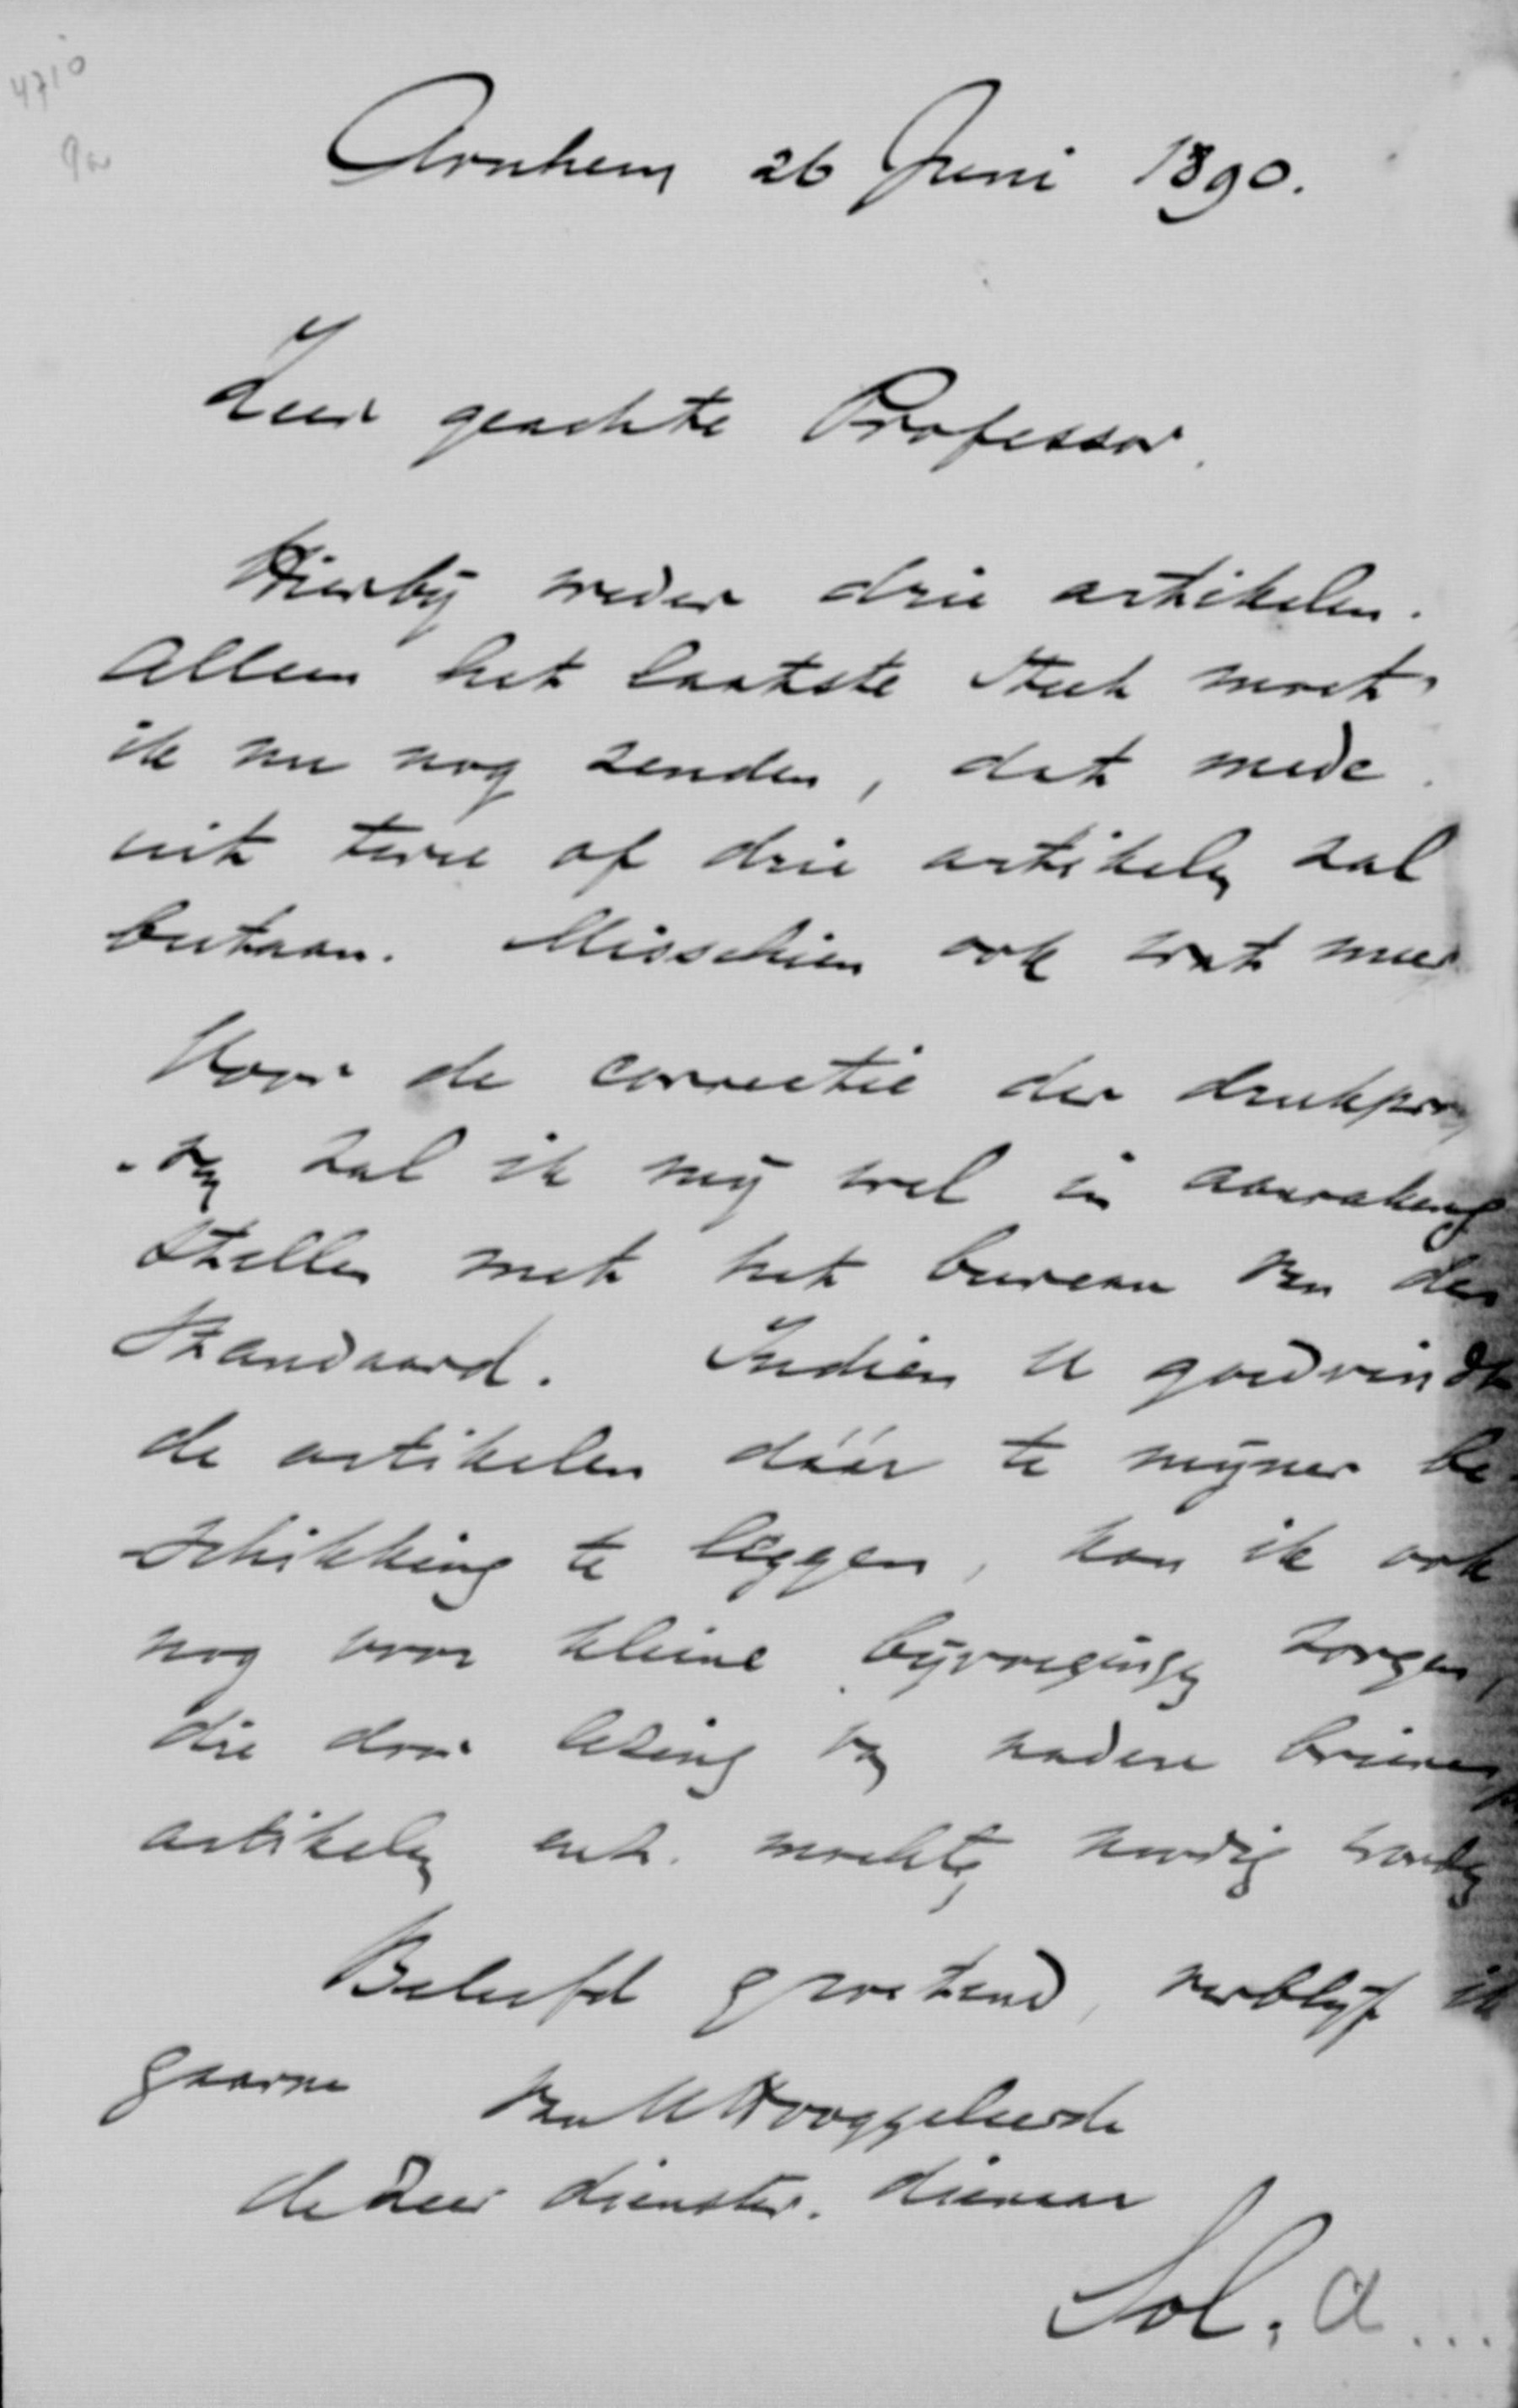 4710
Arnhem 26 Juni 1890.
Zeer geachte Professor.
Hierbij weder drie artikelen.
Alleen het laatste stuk moet
ik nu nog zenden, dat mede
uit twee of drie artikelen zal
bestaan. Misschien ook wat meer
Voor de correctie der drukproe
-ven zal ik mij wel in aanraking
stellen met het bureau van den
Standaard. Indien U goedvindt
de artikelen dáár te mijner be-
schikking te leggen, kan ik ook
nog voor kleine bijvoegingen zorgen,
die door lezing van nadere brieven
artikelen enz. mochten noodig worden
Beleefd groetend, verblijf ik
gaarne van UHooggeleerde
de zeer dienstw. dienaar
Sol. A...